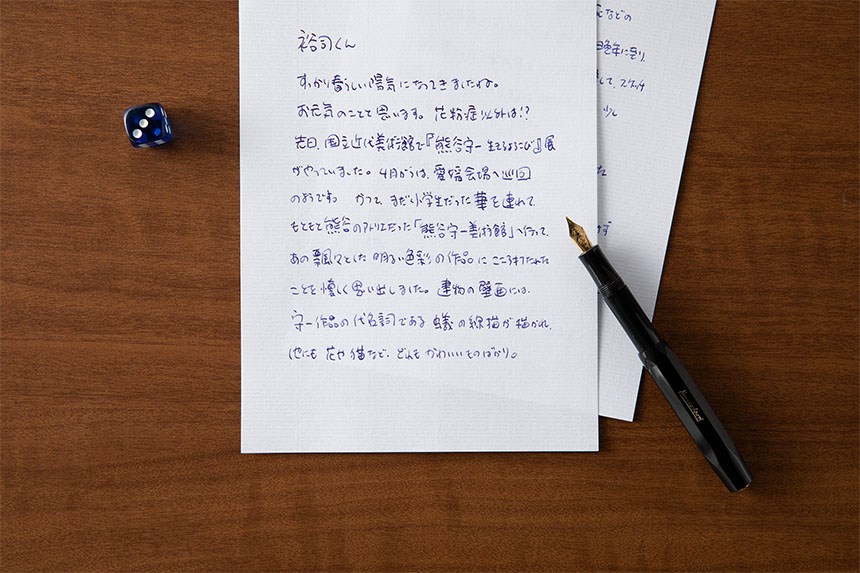 裕司くん
すっかり春らしい陽気になってきましたね。
お元気のことと思います。花粉症以外は!?
先日、国立近代美術館で『熊谷守一 生きるよろこび』展
がやっていました。4月からは、愛媛会場へ巡回
のようです。かつて、まだ小学生だった華を連れて
もともと熊谷のアトリエだった「熊谷守一美術館」へ行って、
あの飄々とした明るい色彩の作品にこころ打たれた
ことを懐しく思い出しました。建物の壁画には、
守一作品の代名詞である蟻の線描が描かれ、
他にも花や猫など、どれもかわいいものばかり。
などの
晩年に至り、
して、スケッチ
少し